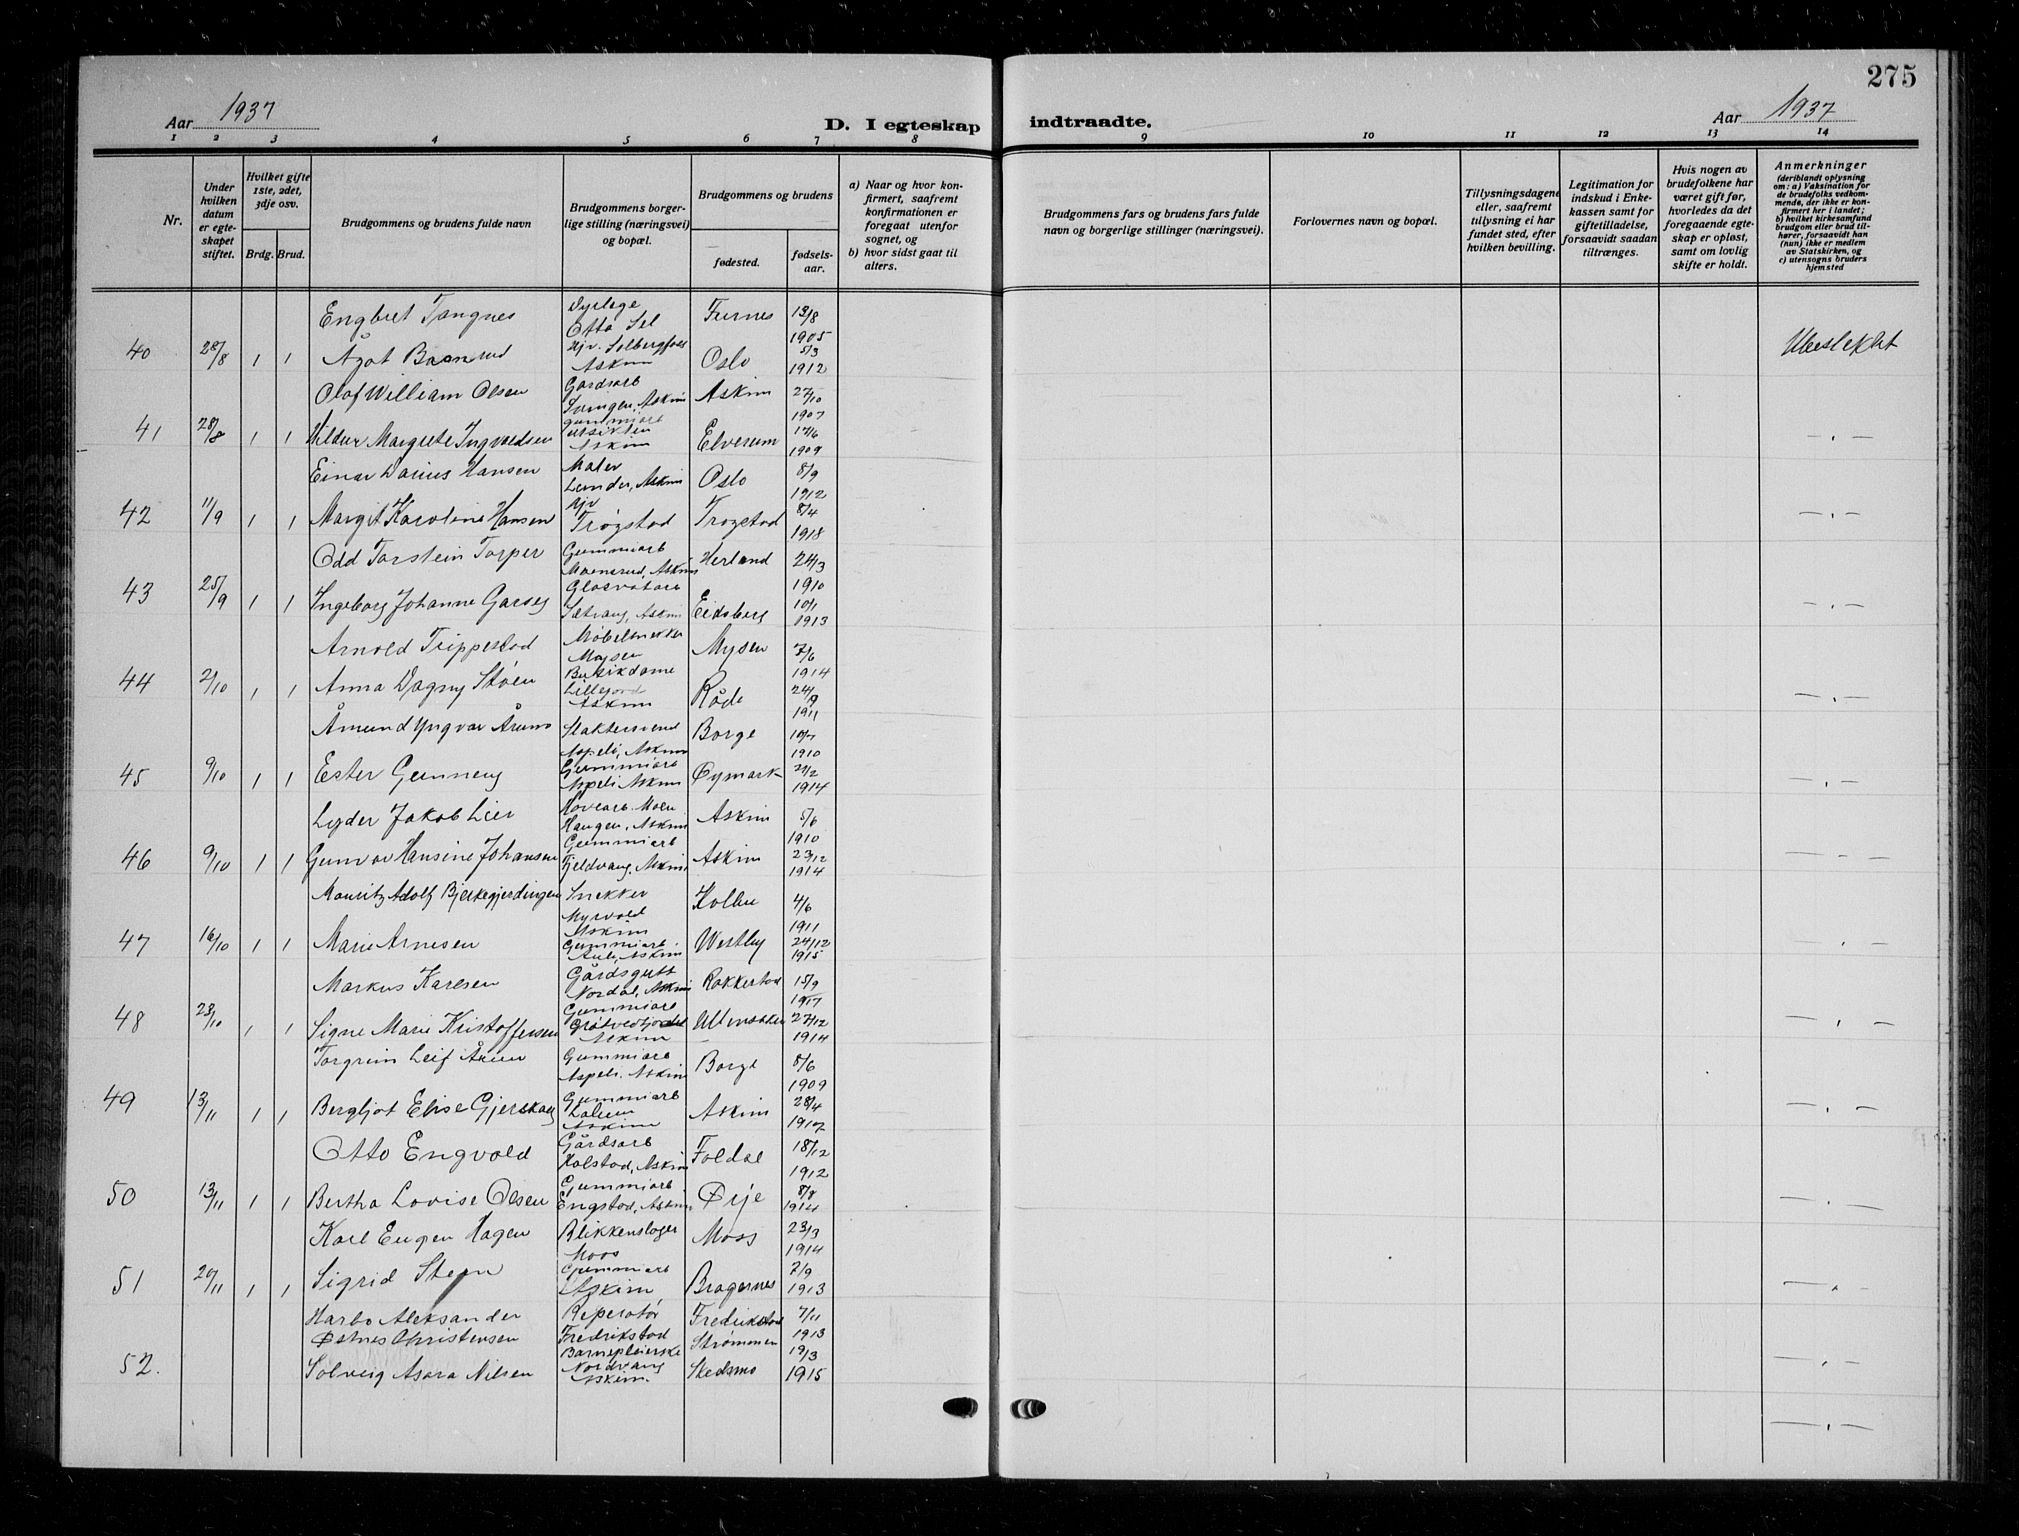 275
Aar 1937
D. I egteskap indtraadte.
Aar 1937
1 2 3 4 5 6 7 8 9 10 11 12 13 14
Nr.
Under hvilken datum er egteskapet stiftet.
Hvilket gifte 1ste, 2det, 3dje osv.
Brdg. Brud.
Brudgommens og brudens fulde navn
Brudgommens borgerlige stilling (næringsvei) og bopæl.
Brudgommens og brudens
fødested.
fødselsaar.
a) Naar og hvor konfirmert, saafremt konfirmationen er foregaat utenfor sognet, og
b) hvor sidst gaat til alters.
Brudgommens fars og brudens fars fulde navn og borgerlige stillinger (næringsvei).
Forlovernes navn og bopæl.
Tillysningsdagene eller, saafremt tillysning ei har fundet sted, efter hvilken bevilling.
Legitimation for indskud i Enkekassen samt for giftetilladelse, forsaavidt saadan tiltrænges.
Hvis nogen av brudefolkene har været gift før, hvorledes da det foregaaende egteskap er opløst, samt om lovlig skifte er holdt.
Anmerkninger (deriblandt oplysning om: a) Vaksination for de brudefolks vedkommende, der ikke er konfirmert her i landet; b) hvilket kirkesamfund brudgom eller brud tilhører, forsaavidt han (nun) ikke er medlem av Statskirken, og c) utensogns bruders hjemsted
Engbret Tangnes Dyrlege Otta Sel Furnes 13/8 1905
40 28/8 1 1 Ågot Solbergfoss Askim Oslo 5/3 1912 Ubeslektet
Olaf William Olsen Gårdsarb Svingen, Askim Askim 27/10 1907
41 28/8 1 1 Hildur Margrete Ingvaldsen gummiarb Utsikten Askim Elverum 17/6 1909 — " —
Einar Darius Hansen Maler Lunder, Askim Oslo 8/9 1912
42 11/9 1 1 Margit Karoline Hansen Hjv Trøgstad Trøgstad 8/4 1918 — " —
Odd Torstein Torper Gummiarb Moensrud, Askim Herland 24/3 1910
43 25/9 1 1 Ingeborg Johanne Garseg Sætrang, Askim Eidsberg 10/1 1913 — " —
Arnold Trippestad Møbelsnekker Mysen Mysen 7/6 1914
44 2/10 1 1 Anna Dagny Støen Butikdame Lillejord Askim Råde 24/9 1911 — " —
Åmund Yngvar Årum Slaktersvend Aspeli, Askim Borge 10/7 1910
45 9/10 1 1 Ester Gunneng Gummiarb Aspeli Askim Øymark 21/2 1914 — " —
Lyder Jakob Lier Moen Haugen, Askim Askim 5/6 1910
46 9/10 1 1 Gunvor Hansine Johansen Gummiarb Fjeldvang, Askim Askim 23/12 1914 — " —
Mauritz Adolf Bjerkegjerdingen Snekker Myrvold Askim Kolbu 4/6 1911
47 16/10 1 1 Marie Arnesen Gummiarb. Auli, Askim Westby 24/12 1915 — " —
Markus Karlsen Gårdsgutt Nordal, Askim Rakkestad 15/9 1917
48 23/10 1 1 Signe Marie Kristoffersen Gummiarb Grøtvedtjordet Askim Ullensaker 27/12 1914 — " —
Torgrim Leif Årum Gummiarb Aspeli. Askim Borge 8/6 1909
49 13/11 1 1 Bergljot Elise Gjerskaug Gummiarb Askim Askim 28/4 1917 — " —
Otto Engvold Gårdsarb Kolstad, Askim Foldal 18/12 1912
50 13/11 1 1 Bertha Lovise Olsen Gummiarb Engstad, Askim Ørje 8/8 1914 — " —
Karl Eugen Hagen Blikkenslager Moss Moss 23/3 1914
51 20/11 1 1 Sigrid Steen Gummiarb Askim Bragernes 2/9 1913 — " —
Harbo Aleksander Østnes Christensen Reperatør Fredrikstad Fredrikstad 7/11 1913
52. Solveig Asora Nilsen Barnepleierske Nordvang Askim. Strømmen Skedsmo 19/3 1915 — " —
— " —